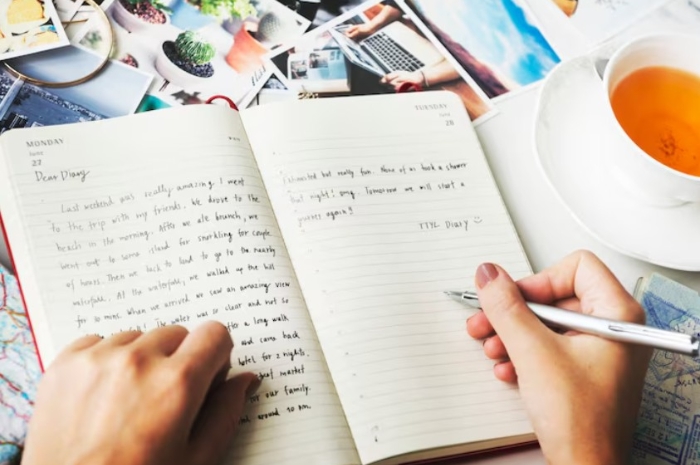 MONDAY
June
27
Dear Diary
Last weekend was really amazing I went
to the trip with my friends. We drove to the
beach in the morning. After we ate brunch, we
went out to some island for snorkling for couple
of hours. Then we back to land to go to the nearby
waterfall. At the waterfall, we walked up the hill
for 30 mins. When we arrived we saw an amazing view
The water was so clear and not so
after a long walk.
and came back
hotel for 2 nights.
market
for our family.
around 10 pm.
TUESDAY
June
28
Exhausted but really fun. None of us took a shower
that night! omg. Tomorrow we will start a
journey again!
TTYL Diary